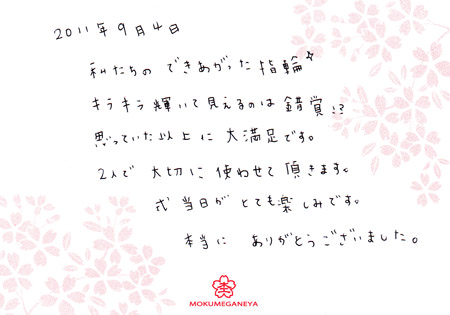 2011年9月4日
私たちのできあがった指輪☆
キラキラ輝いて見えるのは錯賞!?
思っていた以上に大満足です。
2人で大切に使わせて頂きます。
式当日がとても楽しみです。
本当にありがとうございました。
MOKUMEGANEYA